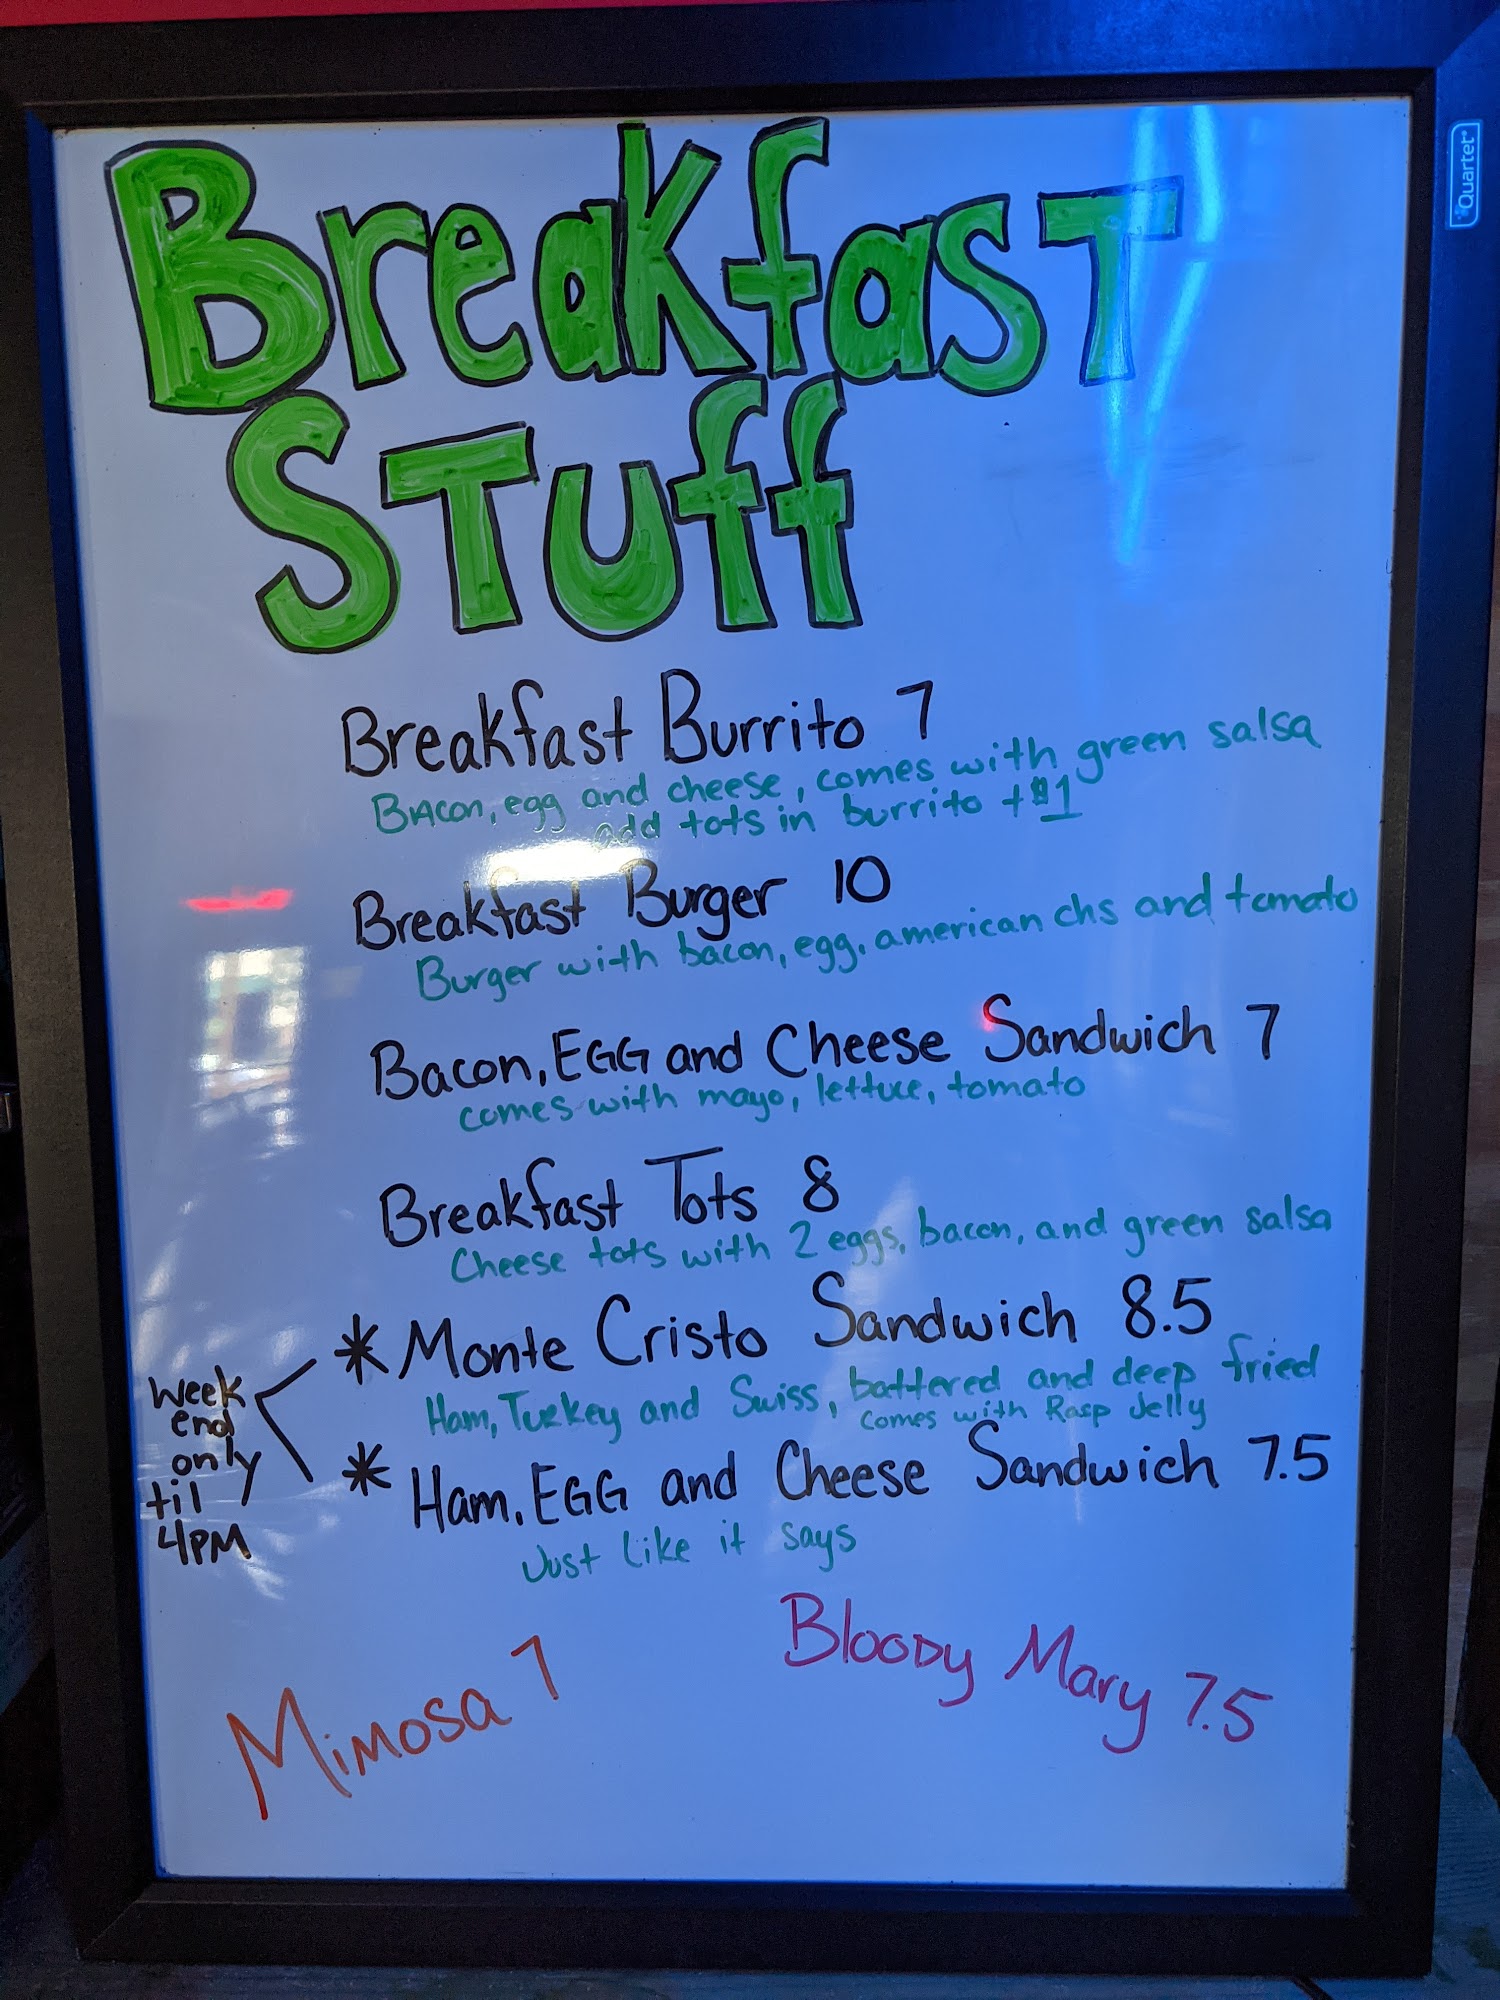 Quartet
Breakfast
Stuff
Breakfast Burrito 7
Bacon, egg and cheese, comes with green salsa
add tots in burrito +$1
Breakfast Burger 10
Burger with bacon, egg, american chs and tomato
Bacon, EGG and Cheese Sandwich 7
comes with mayo, lettuce, tomato
Breakfast Tots 8
Cheese tots with 2 eggs, bacon, and green salsa
* Monte Cristo Sandwich 8.5
Ham, Turkey and Swiss, battered and deep fried
comes with Rasp Jelly
* Ham, EGG and Cheese Sandwich 7.5
Just like it says
week
end
only
til
4PM
Mimosa 7
Bloody Mary 7.5